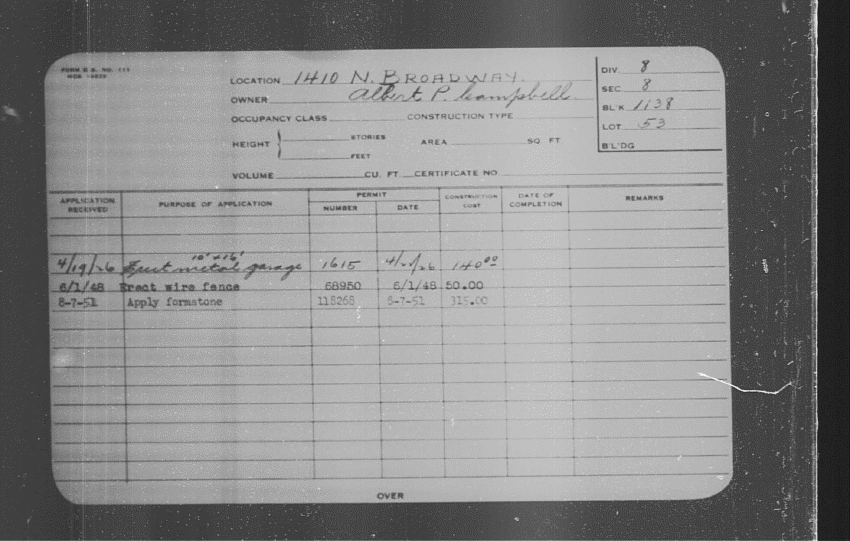 FORM B B. NO. 111
LOCATION 1410 N. BROADWAY.
OWNER Albert P. Campbell.
OCCUPANCY CLASS CONSTRUCTION TYPE
HEIGHT } STORIES AREA SQ FT
FEET
VOLUME CU. FT. CERTIFICATE NO
DIV. 8
SEC 8
BL'K 1138
LOT 53
B'L'DG
APPLICATION RECEIVED PURPOSE OF APPLICATION PERMIT NUMBER DATE CONSTRUCTION COST DATE OF COMPLETION REMARKS
10' x 16'
4/19/26 Erect metal garage 1615 4/20/26 140.00
6/1/48 Erect wire fence 68950 6/1/48 50.00
8-7-51 Apply formstone 118268 8-7-51 315.00
OVER